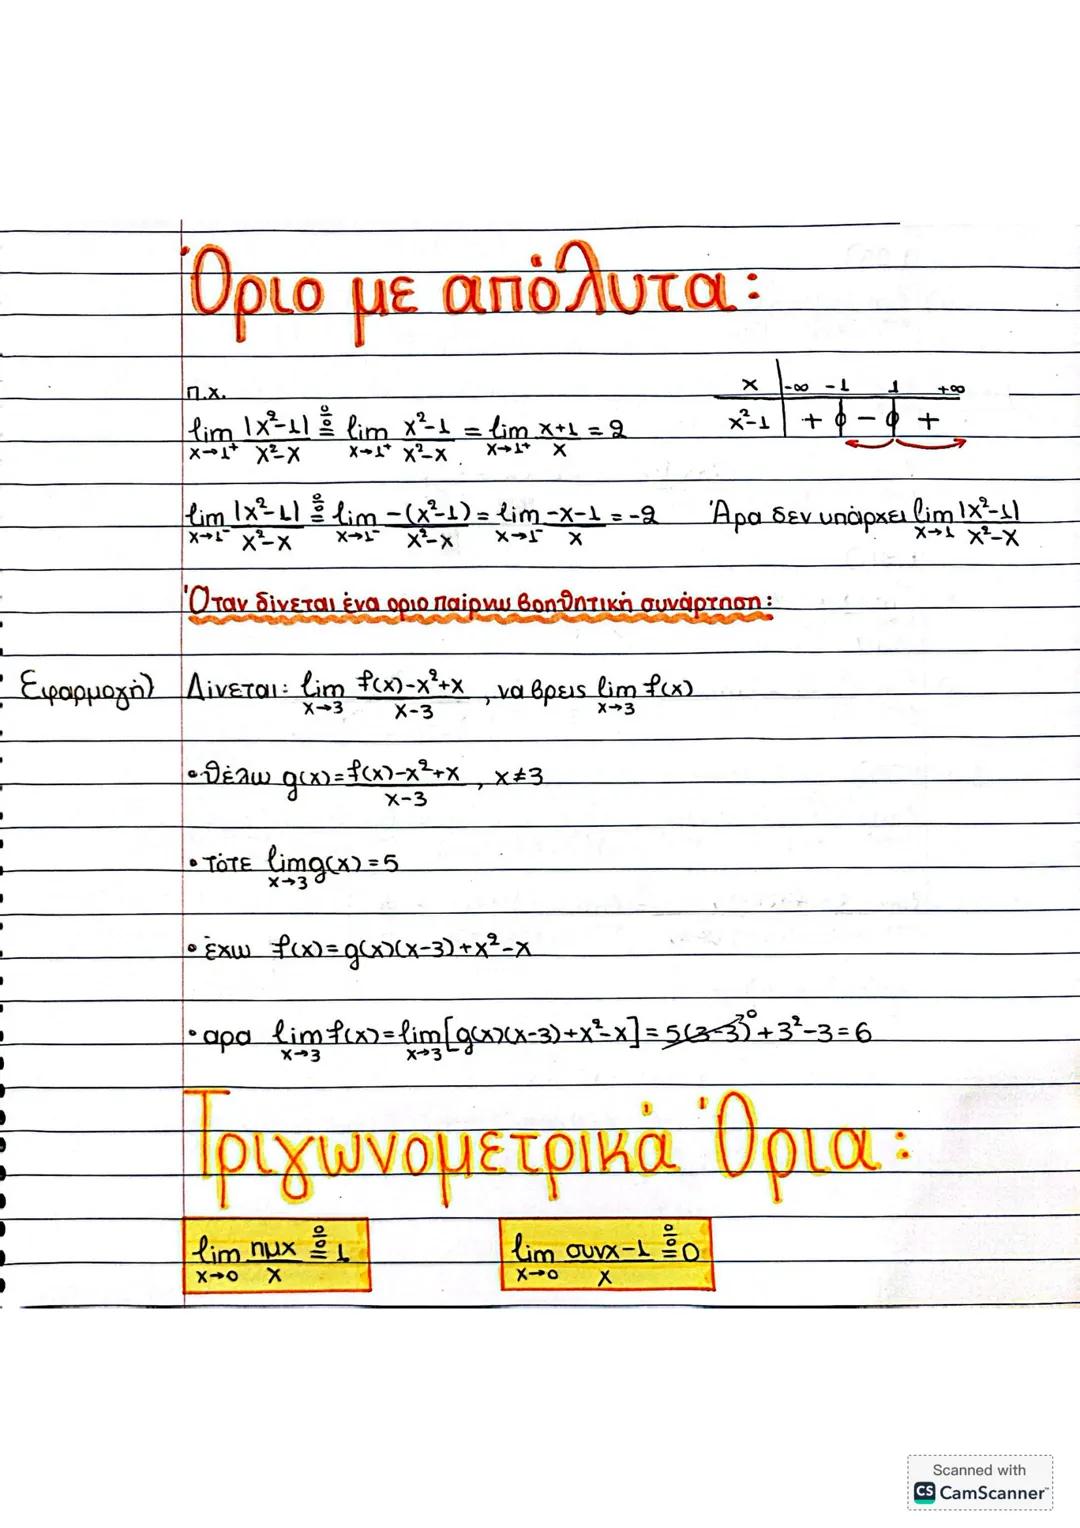 Όριο με απόλυτα:
π.χ.
lim x→1⁺ |x²-1|/x²-x 0/0= lim x→1⁺ x²-1/x²-x = lim x→1⁺ x+1/x = 2
x | -∞ -1 1 +∞
x²-1 | + 0 - 0 +
lim x→1⁻ |x²-1|/x²-x 0/0= lim x→1⁻ -(x²-1)/x²-x = lim x→1⁻ -x-1/x = -2 Άρα δεν υπάρχει lim x→1 |x²-1|/x²-x
Όταν δίνεται ένα οριο παίρνω βοηθητική συνάρτηση:
Εφαρμογή) Δίνεται: lim x→3 f(x)-x²+x/x-3 , να βρεις lim x→3 f(x)
• θέλω g(x)=f(x)-x²+x/x-3 , x≠3
• τότε lim x→3 g(x)=5
• έχω f(x)=g(x)(x-3)+x²-x
• αρα lim x→3 f(x)=lim x→3 [g(x)(x-3)+x²-x]=5(3-3)⁰+3²-3=6
Τριγωνομετρικά Όρια:
lim x→0 ημx/x 0/0= 1
lim x→0 συνx-1/x 0/0= 0
Scanned with
CS CamScanner™